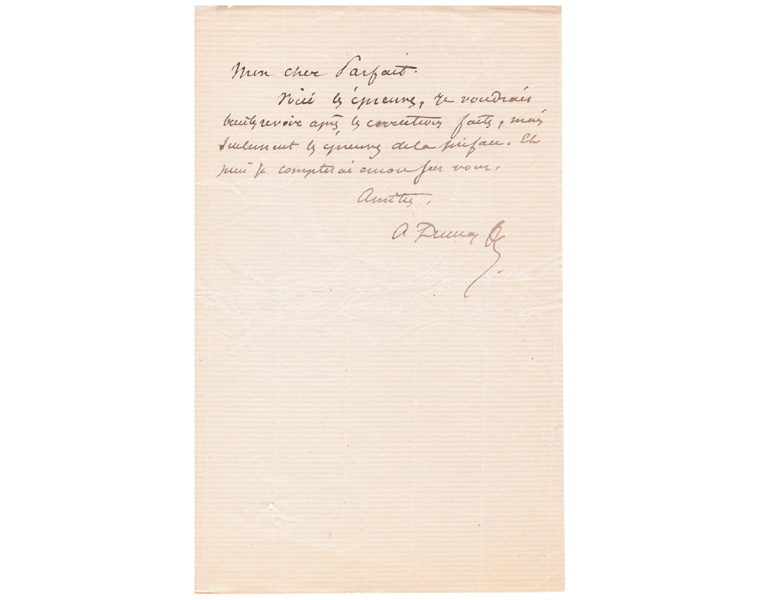 Mon cher Parfait.
Voici les épreuves, je voudrais
revoir après les corrections faites, mais
seulement les épreuves de la préface. Et
puis je compterai encore sur vous.
Amitiés,
A Dumas